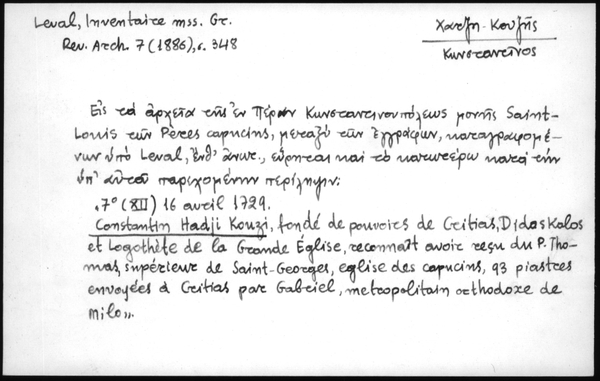 Leval, Inventaire mss. Gr.
Rev. Arch. 7 (1886), σ. 348
Χατζη-Κουζῆς
Κωνσταντῖνος
Εἰς τὰ ἀρχεῖα τῆς ἐν Πέραν Κωνσταντινουπόλεως μονῆς Saint-
Louis τῶν Pères capucins, μεταξὺ τῶν ἐγγράφων, καταγραφομέ-
νων ὑπὸ Leval, ἔνθ' ἀνωτ., εὕρηται καὶ τὸ κατωτέρω κατὰ τὴν
ὑπ' αὐτοῦ παρεχομένην περίληψιν:
"7° (XII) 16 avril 1729.
Constantin Hadji Kouzi, fondé de pouvoirs de Critias, Didaskalos
et Logothète de la Grande Église, reconnaît avoir reçu du P. Tho-
mas, supérieur de Saint-Georges, eglise des capucins, 93 piastres
envoyées à Critias par Gabriel, metropolitain orthodoxe de
Milo".